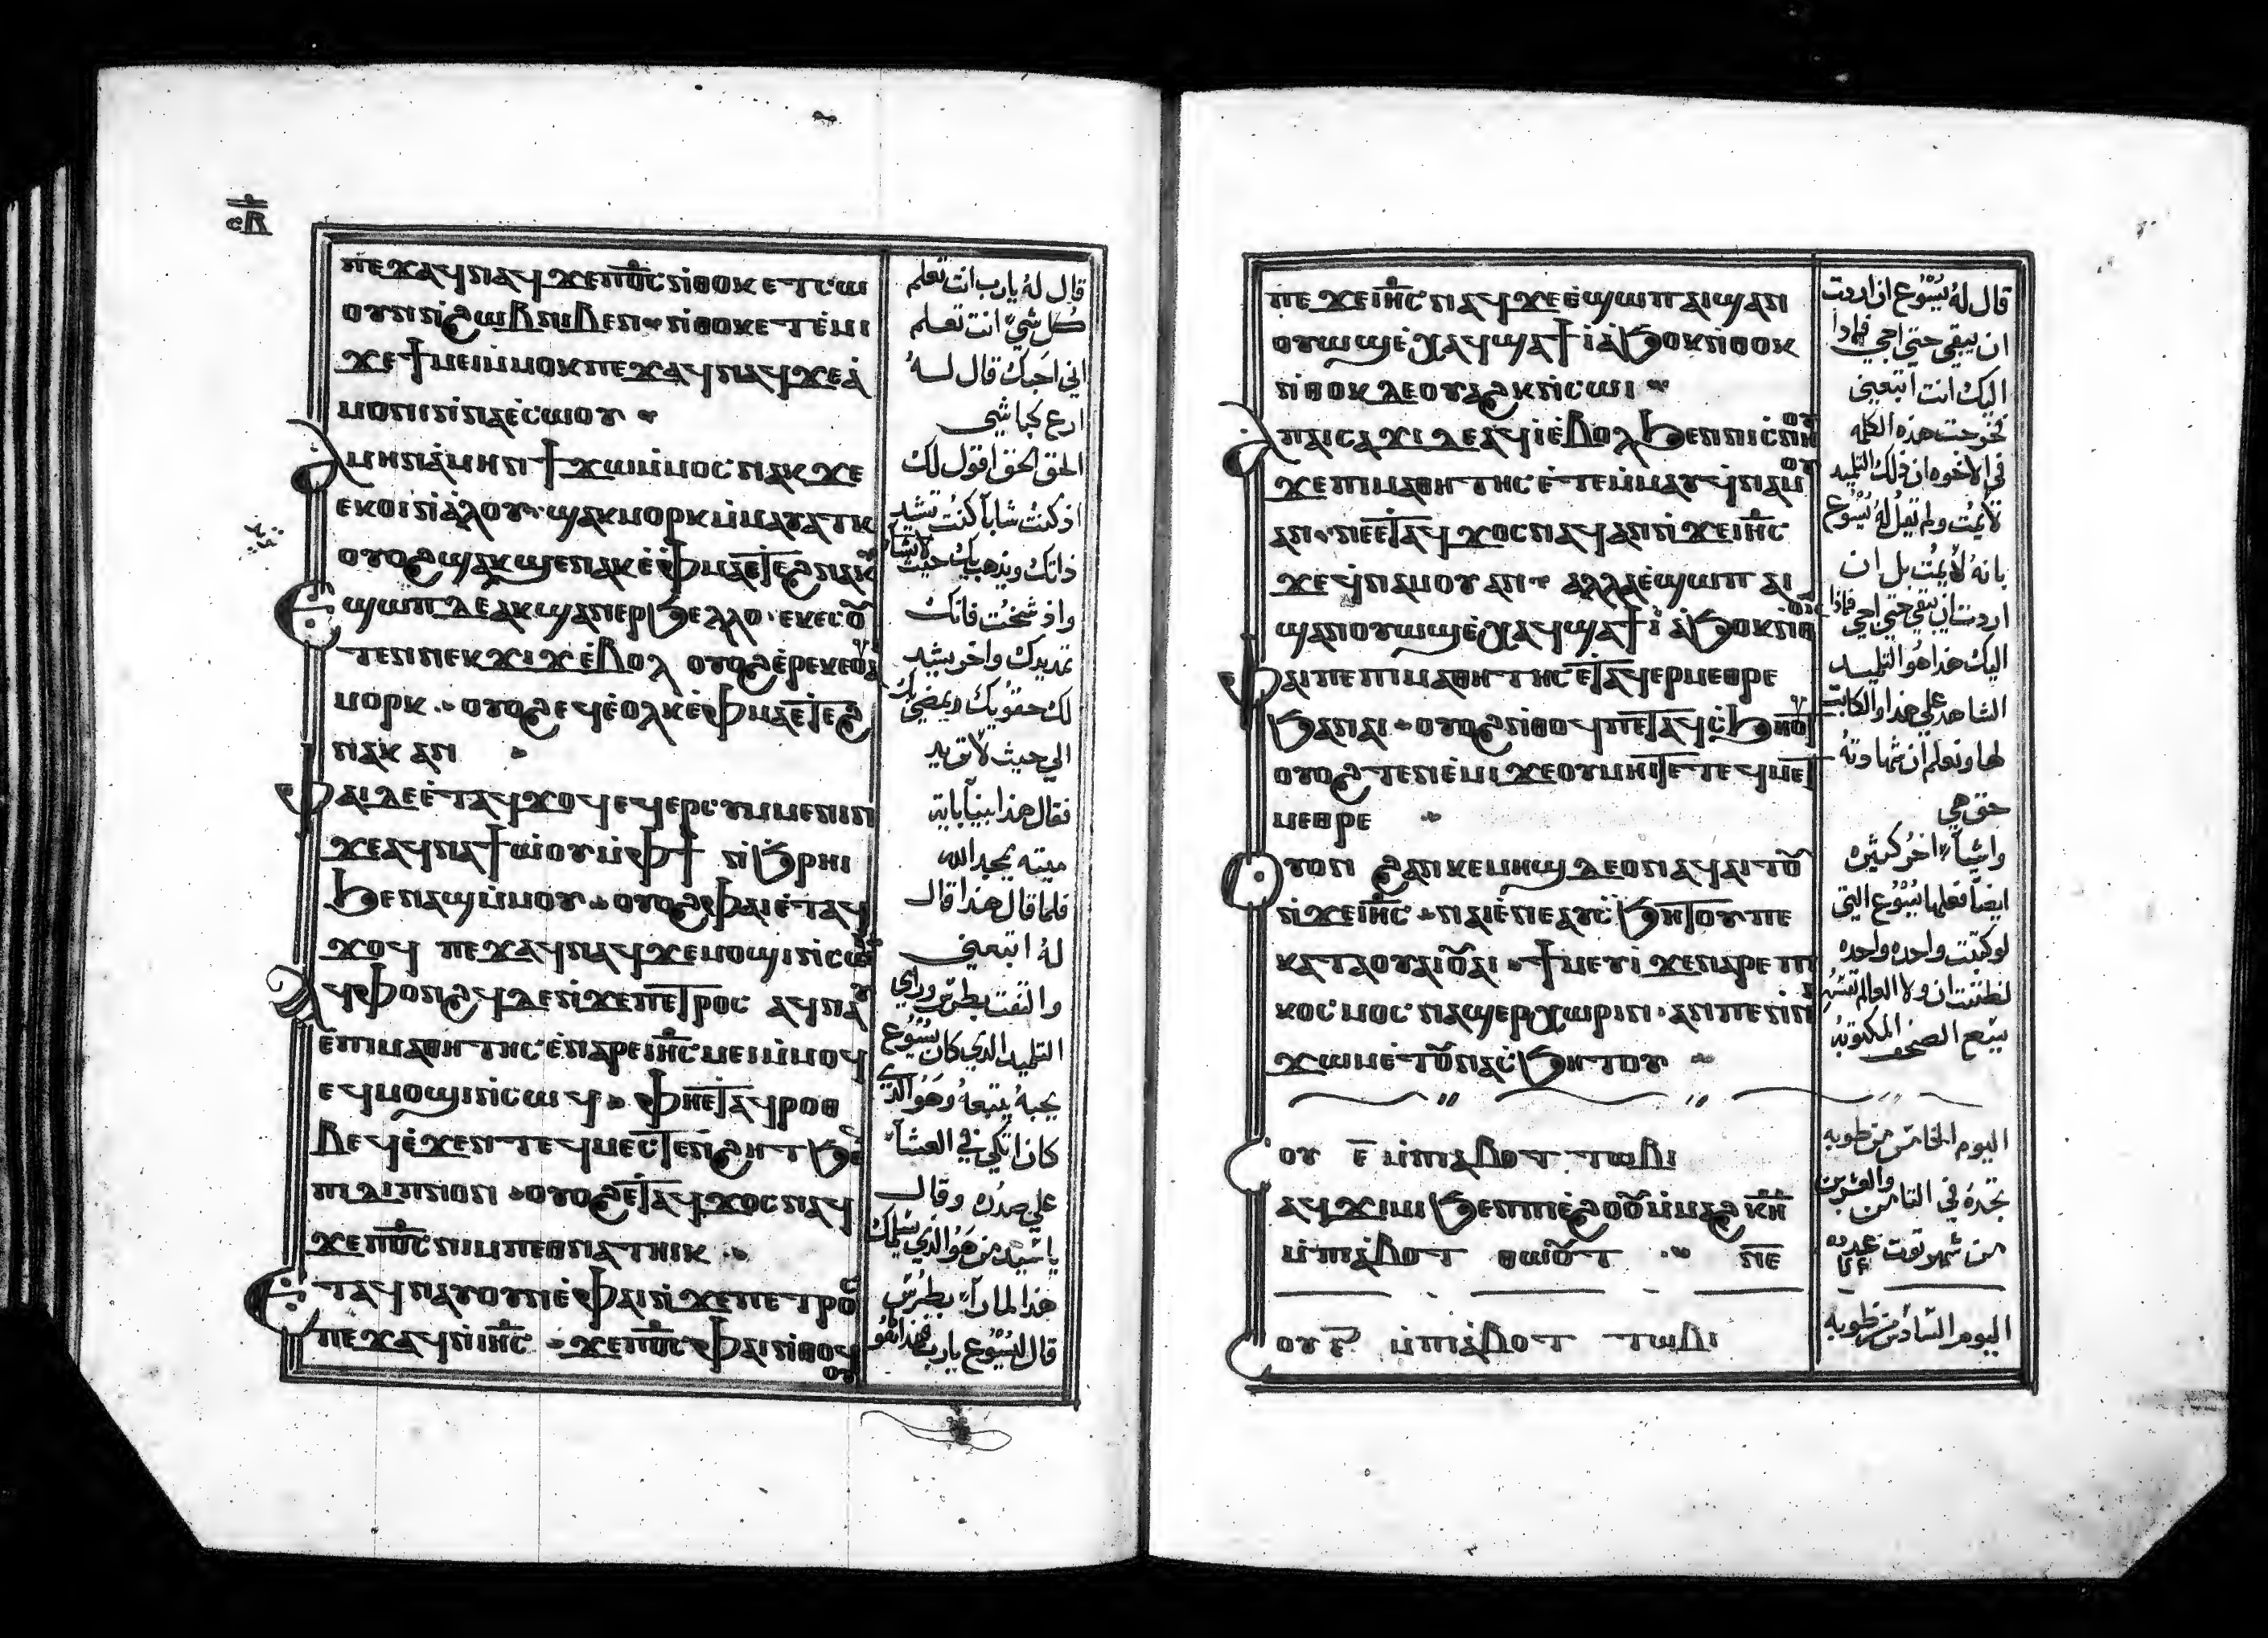 ⲥⲃ
ⲡⲉϫⲁϥⲛⲁϥ ϫⲉⲡⲟ̅ⲥ̅ ⲛ̀ⲑⲟⲕ ⲉⲧⲥⲱ
ⲟⲩⲛ ⲛ̀ϩⲱⲃ ⲛⲓⲃⲉⲛ ⲛ̀ⲑⲟⲕ ⲉⲧⲉ̀ⲙⲓ
ϫⲉϯⲙⲉⲓ ⲙ̀ⲙⲟⲕ ⲡⲉϫⲁϥⲛⲁϥ ϫⲉⲁ̀
ⲙⲟⲛⲓ ⲛ̀ⲛⲁⲉ̀ⲥⲱⲟⲩ
ⲁⲙⲏⲛ ⲁ̀ⲙⲏⲛ ϯϫⲱ ⲙ̀ⲙⲟⲥ ⲛⲁⲕ ϫⲉ
ⲉⲕⲟⲓ ⲛ̀ⲁ̀ⲗⲟⲩ ϣⲁⲕⲙⲟⲣⲕ ⲙ̀ⲙⲁⲩⲁⲧⲕ
ⲟⲩⲟϩ ϣⲁⲕϣⲉⲛⲁⲕ ⲉ̀ⲫⲙⲁ ⲉⲧⲉϩⲛⲁⲕ
ⲉϣⲱⲡ ⲇⲉ ⲁⲕϣⲁⲛⲉⲣϧⲉⲗⲗⲟ ⲉⲕⲉⲥⲟ̅
ⲧⲉⲛ ⲛⲉⲕϫⲓϫ ⲉ̀ⲃⲟⲗ ⲟⲩⲟϩ ⲉ̀ⲣⲉ ⲕⲉⲟⲩⲁⲓ
ⲙⲟⲣⲕ ⲟⲩⲟϩ ⲉϥⲉ̀ⲟⲗⲕ ⲉ̀ⲫⲙⲁ ⲉⲧⲉϩ
ⲛⲁⲕ ⲁⲛ
ⲫⲁⲓ ⲇⲉ ⲉ̀ⲧⲁϥϫⲟϥ ⲉϥⲉⲣⲥⲩⲙⲙⲉⲛⲓⲛ
ϫⲉⲁϥⲛⲁϯⲱ̀ⲟⲩ ⲙ̀ⲫϯ ⲛ̀ϧⲣⲏⲓ
ϧⲉⲛ ⲁϣ ⲙ̀ⲙⲟⲩ ⲟⲩⲟϩ ⲫⲁⲓ ⲉ̀ⲧⲁϥ
ϫⲟϥ ⲡⲉϫⲁϥⲛⲁϥ ϫⲉⲙⲟϣⲓ ⲛ̀ⲥⲱⲓ
ⲁϥⲫⲟⲛϩϥ ⲇⲉ ⲛ̀ϫⲉⲡⲉⲧⲣⲟⲥ ⲁϥⲛⲁⲩ
ⲉⲡⲓⲙⲁⲑⲏⲧⲏⲥ ⲉ̀ⲛⲁⲣⲉ ⲓⲏ̅ⲥ̅ ⲙⲉⲓ ⲙ̀ⲙⲟϥ
ⲉϥⲙⲟϣⲓ ⲛ̀ⲥⲱϥ ⲫⲏⲉⲧⲁϥⲣⲟⲑ
ⲃⲉϥ ⲉ̀ϫⲉⲛ ⲧⲉϥⲙⲉⲥⲧⲉⲛϩⲏⲧ ϧⲉⲛ
ⲡⲓⲇⲓⲡⲛⲟⲛ ⲟⲩⲟϩ ⲉⲧⲁϥϫⲟⲥ ⲛⲁϥ
ϫⲉⲡⲟ̅ⲥ̅ ⲛⲓⲙ ⲡⲉⲑⲛⲁⲧⲏⲓⲕ
ⲉⲧⲁϥⲛⲁⲩ ⲟⲩⲛ ⲉ̀ⲫⲁⲓ ⲛ̀ϫⲉⲡⲉⲧⲣⲟⲥ
ⲡⲉϫⲁϥ ⲛ̀ⲓⲏ̅ⲥ̅ ϫⲉⲡⲟ̅ⲥ̅ ⲫⲁⲓ ⲛ̀ⲑⲟϥ
ⲟⲩ
قال لهُ يارب انت تعلم
كل شي انت تعلم
اني احبك قال لهُ
ارع كباشي
الحق الحق اقول لك
اذ كنت شاباً كنت تشد
ذاتك وتذهب بك حيث تشا
واذ شخت فانك
تمد يدك واخر يشد
لك حقويك ويمضي بك
الي حيث لا تريد
فقال هذا مبيناً باية
ميتة يمجد الله
فلما قال هذا قال
لهُ اتبعني
والتفت بطرس وراي
التلميذ الذي كان يسوع
يحبهُ يتبعهُ وهو الذي
كان اتكي في العشاء
علي صدره وقال
يا سيد من هو الذي يسلمك
هذا لما رآه بطرس
قال ليسوع يارب هذا هو
ⲡⲉϫⲉ ⲓⲏ̅ⲥ̅ ⲛⲁϥ ϫⲉ ⲉ̀ϣⲱⲡ ⲁⲓϣⲁⲛ
ⲟⲩⲱϣ ⲉ̀ⲭⲁϥ ϣⲁϯⲓ̀ ⲁ̀ϧⲟⲕ ⲛ̀ⲑⲟⲕ
ⲛ̀ⲑⲟⲕ ⲇⲉ ⲟⲩⲁϩⲕ ⲛ̀ⲥⲱⲓ
ⲁⲡⲁⲓⲥⲁϫⲓ ⲇⲉ ⲁϥⲓ̀ ⲉ̀ⲃⲟⲗ ϧⲉⲛ ⲛⲓⲥⲛⲏⲟⲩ
ϫⲉⲡⲓⲙⲁⲑⲏⲧⲏⲥ ⲉ̀ⲧⲉⲙ̀ⲙⲁⲩ ϥ̀ⲛⲁⲙⲟⲩ
ⲁⲛ ⲛⲉⲉⲧⲁϥϫⲟⲥ ⲛⲁϥ ⲁⲛ ⲛ̀ϫⲉ ⲓⲏ̅ⲥ̅
ϫⲉ ϥ̀ⲛⲁⲙⲟⲩ ⲁⲛ ⲁⲗⲗⲁ ⲉ̀ϣⲱⲡ ⲁⲓ
ϣⲁⲛⲟⲩⲱϣ ⲉ̀ⲭⲁϥ ϣⲁϯⲓ̀ ⲁ̀ϧⲟⲕ ⲛⲑⲟⲕ
ⲫⲁⲓ ⲡⲉ ⲡⲓⲙⲁⲑⲏⲧⲏⲥ ⲉⲧⲁϥⲉⲣⲙⲉⲑⲣⲉ
ϧⲁ ⲛⲁⲓ ⲟⲩⲟϩ ⲛ̀ⲑⲟϥ ⲡⲉⲧⲁϥⲥ̀ϧⲏⲧⲟⲩ
ⲟⲩⲟϩ ⲧⲉⲛⲉ̀ⲙⲓ ϫⲉ ⲟⲩⲙⲏⲓ ⲧⲉ ⲧⲉϥⲙⲉⲧ
ⲙⲉⲑⲣⲉ
ⲟⲩⲟⲛ ϩⲁⲛⲕⲉⲙⲏϣ ⲇⲉ ⲟⲛ ⲁϥⲁⲓⲧⲟⲩ
ⲛ̀ϫⲉ ⲓⲏ̅ⲥ̅ ⲛⲁⲓ ⲉ̀ⲛⲉⲁⲩⲥ̀ϧⲏⲧⲟⲩ ⲡⲉ
ⲕⲁⲧⲁ ⲟⲩⲁⲓ ⲟⲩⲁⲓ ϯⲙⲉⲩⲓ ϫⲉ ⲛⲁⲣⲉ ⲡⲓ
ⲕⲟⲥⲙⲟⲥ ⲛⲁϣⲉⲣⲭⲱⲣⲓⲛ ⲁⲛⲡⲉ ⲛ̀ⲛⲓ
ϫⲱⲙ ⲉ̀ⲧⲟⲩⲛⲁⲥ̀ϧⲏⲧⲟⲩ
ⲥⲟⲩ ⲉ̅ ⲙ̀ⲡⲓⲁ̀ⲃⲟⲧ ⲧⲱⲃⲓ
ⲁϥϫⲓⲙⲓ ϧⲉⲛ ⲡⲓⲉ̀ϩⲟⲟⲩ ⲙ̀ⲙⲁϩ ⲕⲏ̅
ⲙ̀ⲡⲓⲁ̀ⲃⲟⲧ ⲑⲱⲟⲩⲧ ⲛⲉ
ⲥⲟⲩ ⲋ̅ ⲙ̀ⲡⲓⲁ̀ⲃⲟⲧ ⲧⲱⲃⲓ
قال لهُ يسوع ان اردت
ان يبقي حتي اجي فماذا
اليك انت اتبعني
فخرجت هذه الكلمه
في الاخوه ان ذلك التلميذ
لا يمت ولم يقل لهُ يسوع
بانهُ لا يمت بل ان
اردت ان يبقي حتي اجي فماذا
اليك هذا هو التلميذ
الشاهد علي هذا والكاتب
لها ونعلم ان شهادتهُ
حق هي
واشياء اخر كثيره
ايضاً فعلها يسوع التي
لو كتبت واحده واحده
لظننت ان ولا العالم
يسع الصحف المكتوبه
اليوم الخامس من طوبه
تجده في الثامن والعشرين
من شهر توت
اليوم السادس من طوبه